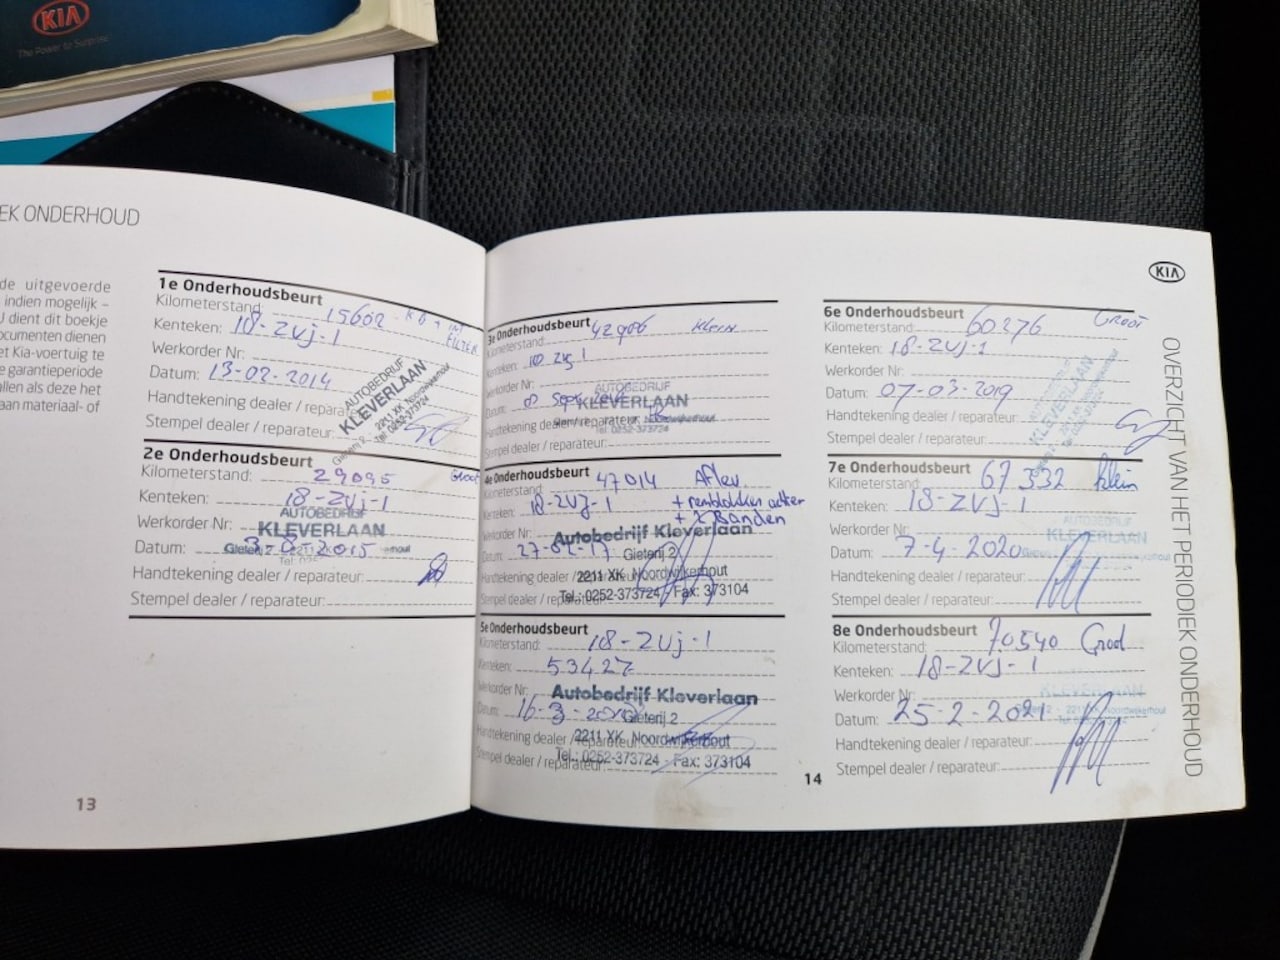 KIA
The Power to Surprise
EK ONDERHOUD
de uitgevoerde
indien mogelijk –
U dient dit boekje
ocumenten dienen
et Kia-voertuig te
e garantieperiode
allen als deze het
aan materiaal- of
1e Onderhoudsbeurt
Kilometerstand: 15602
FILTER
Kenteken: 18-ZVJ-1
Werkorder Nr:
Datum: 13-02-2014
Handtekening dealer / reparateur:
Stempel dealer / reparateur:
AUTOBEDRIJF
KLEVERLAAN
Gieterij 2 - 2211 XK Noordwijkerhout
Tel. 0252-373724
2e Onderhoudsbeurt
Kilometerstand: 29095 Groot
Kenteken: 18-ZVJ-1
Werkorder Nr:
Datum: 3-8-2015
Handtekening dealer / reparateur:
Stempel dealer / reparateur:
AUTOBEDRIJF
KLEVERLAAN
13
3e Onderhoudsbeurt
Kilometerstand: 42906 Klein
Kenteken:
Werkorder Nr:
Datum: Sept
Handtekening dealer / reparateur:
Stempel dealer / reparateur:
AUTOBEDRIJF
KLEVERLAAN
Tel 0252-373724
4e Onderhoudsbeurt
Kilometerstand: 47014 Aflev.
Kenteken: 18-ZVJ-1 + remblokken achter
Werkorder Nr: + 2 Banden
Datum: 27-02-17
Handtekening dealer / reparateur:
Stempel dealer / reparateur:
Autobedrijf Kleverlaan
Gieterij 2
2211 XK Noordwijkerhout
Tel.: 0252-373724 / Fax: 373104
5e Onderhoudsbeurt
Kilometerstand: 18-ZVJ-1
Kenteken: 53427
Werkorder Nr:
Datum: 16-3-2018
Handtekening dealer / reparateur:
Stempel dealer / reparateur:
Autobedrijf Kleverlaan
Gieterij 2
2211 XK Noordwijkerhout
Tel.: 0252-373724 - Fax: 373104
14
KIA
6e Onderhoudsbeurt
Kilometerstand: 60276 Groot
Kenteken: 18-ZVJ-1
Werkorder Nr:
Datum: 07-03-2019
Handtekening dealer / reparateur:
Stempel dealer / reparateur:
KLEVERLAAN
7e Onderhoudsbeurt
Kilometerstand: 67332 Klein
Kenteken: 18-ZVJ-1
Werkorder Nr:
Datum: 7-4-2020
Handtekening dealer / reparateur:
Stempel dealer / reparateur:
AUTOBEDRIJF
KLEVERLAAN
8e Onderhoudsbeurt
Kilometerstand: 70540 Groot
Kenteken: 18-ZVJ-1
Werkorder Nr:
Datum: 25-2-2021
Handtekening dealer / reparateur:
Stempel dealer / reparateur:
KLEVERLAAN
OVERZICHT VAN HET PERIODIEK ONDERHOUD